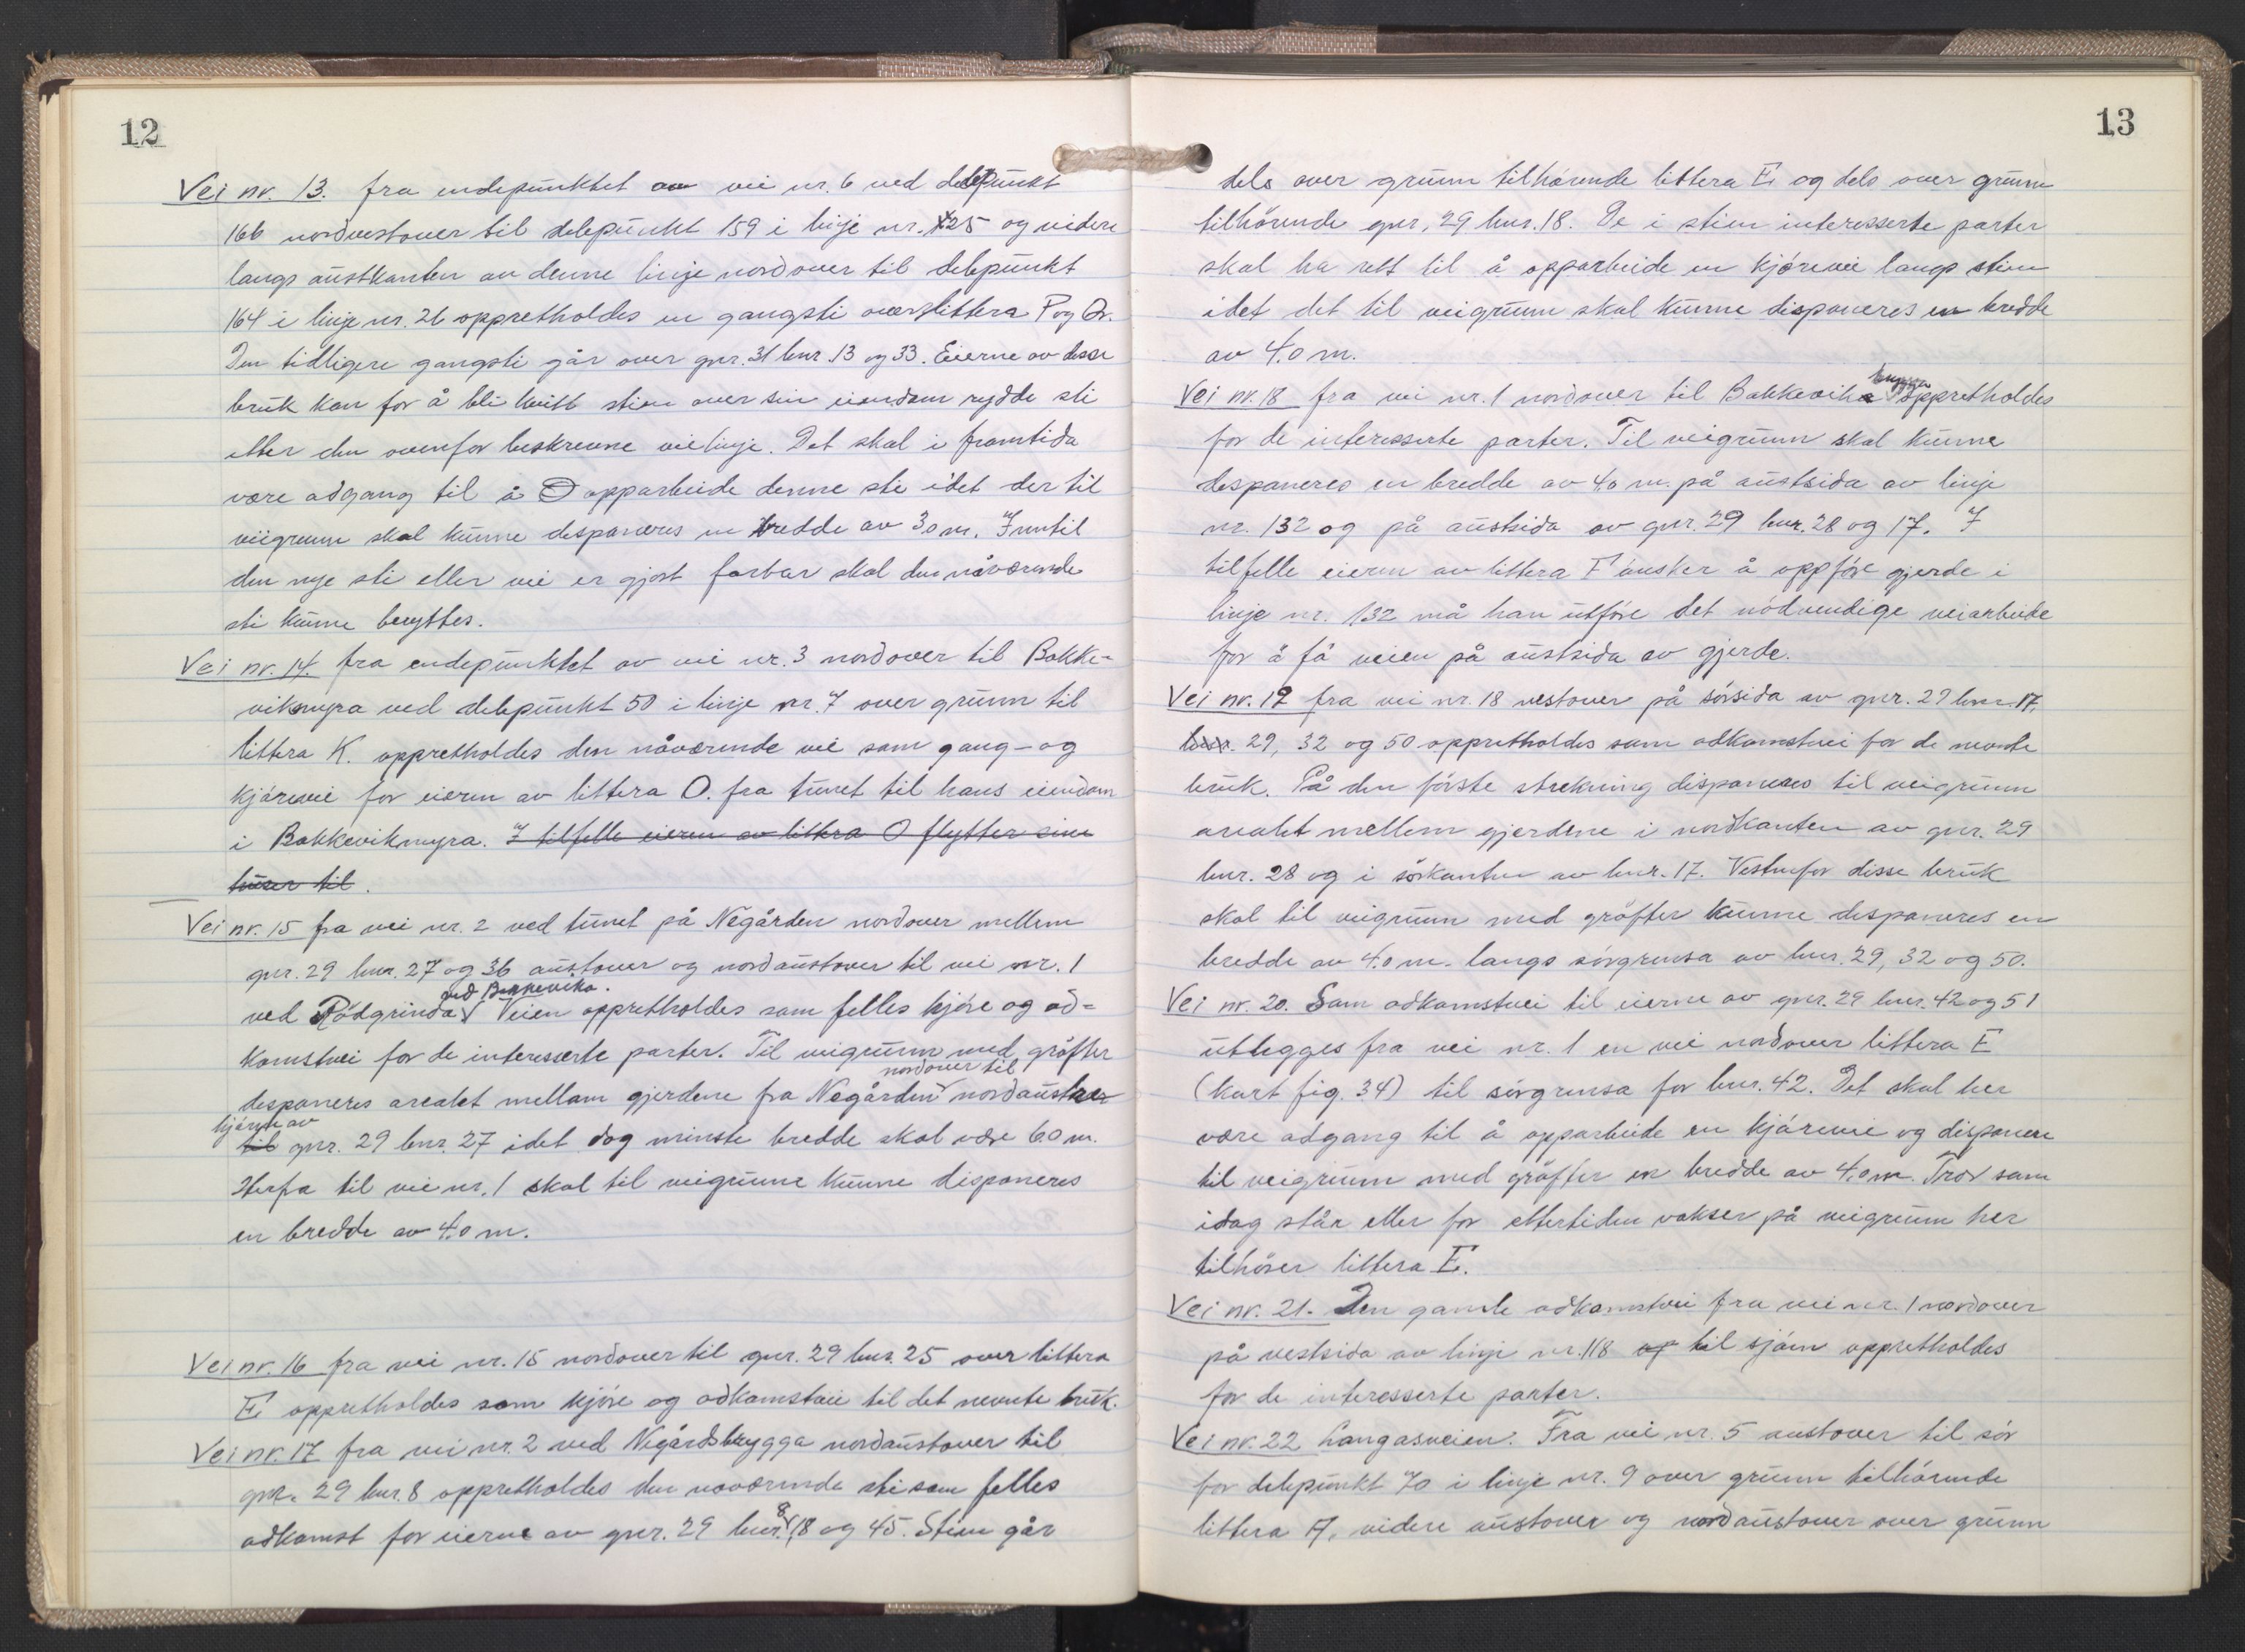 12
Vei nr. 13. fra endepunktet av vei nr. 6 ved delepunkt
166 nordvestover til delepunkt 159 i linje nr. 125 og videre
langs austkanten av denne linje nordover til delepunkt
164 i linje nr. 26 oppretholdes en gangsti over littera P og Q.
Den tidligere gangsti går over gnr. 31 bnr. 13 og 33. Eierne av disse
bruk kan for å bli kvitt stien over sin eiendom rydde sti
etter den ovenfor beskrevne veilinje. Det skal i framtida
være adgang til å opparbeide denne sti idet der til
veigrunn skal kunne desponeres en bredde av 3.0 m. Inntil
den nye sti eller vei er gjort farbar skal den nåværende
sti kunne benyttes.
Vei nr. 14. fra endepunktet av vei nr. 3 nordover til Bakke-
vikmyra ved delepunkt 50 i linje nr. 7 over grunn til
littera K. oppretholdes den nåværende vei som gang- og
kjørevei for eieren av littera O. fra tunet til hans eiendom
i Bakkevikmyra. I tilfelle eieren av littera O flytter sine
huser til.
Vei nr. 15 fra vei nr. 2 ved tunet på Negården nordover mellem
gnr. 29 bnr. 27 og 36 austover og nordaustover til vei nr. 1
ved Bakkevika.
ved Rødgrinda Veien oppretholdes som felles kjøre og ad-
komstvei for de interesserte parter. Til veigrunn med grøfter
nordover til
desponeres arealet mellom gjerdene fra Negården nordaustre
hjørne av
til gnr. 29 bnr. 27 idet dog minste bredde skal være 6.0 m.
Herfra til vei nr. 1 skal til veigrunne kunne disponeres
en bredde av 4.0 m.
Vei nr. 16 fra vei nr. 15 nordover til gnr. 29 bnr. 25 over littera
E oppretholdes som kjøre og adkomstvei til det nevnte bruk.
Vei nr. 17 fra vei nr. 2 ved Negårdsbrygga nordaustover til
gnr. 29 bnr. 8 oppretholdes den nåværende sti som felles
8
adkomst for eierne av gnr. 29 bnr. 18 og 45. Stien går
13
dels over grunn tilhørende littera E og dels over grunn
tilhørende gnr. 29 bnr. 18. De i stien interesserte parter
skal ha rett til å opparbeide en kjørevei langs stien
idet det til veigrunn skal kunne disponeres en bredde
av 4.0 m.
brygga
Vei nr. 18 fra vei nr. 1 nordover til Bakkevika oppretholdes
for de interesserte parter. Til veigrunn skal kunne
desponeres en bredde av 4.0 m. på austsida av linje
nr. 132 og på austsida av gnr. 29 bnr. 28 og 17. I
tilfelle eieren av littera F ønsker å oppføre gjerde i
linje nr. 132 må han utføre det nødvendige veiarbeide
for å få veien på austsida av gjerde.
Vei nr. 19 fra vei nr. 18 vestover på sørsida av gnr. 29 bnr. 17,
bnr. 29, 32 og 50 oppretholdes som adkomstvei for de nevnte
bruk. På den første strekning disponeres til veigrunn
arealet mellem gjerdene i nordkanten av gnr. 29
bnr. 28 og i sørkanten av bnr. 17. Vestenfor disse bruk
skal til veigrunn med grøfter kunne desponeres en
bredde av 4.0 m. langs sørgrensa av bnr. 29, 32 og 50.
Vei nr. 20. Som adkomstvei til eierne av gnr. 29 bnr. 42 og 51
utlegges fra vei nr. 1 en vei nordover littera E
(kart fig. 34) til sørgrensa for bnr. 42. Det skal her
være adgang til å opparbeide en kjørevei og disponere
til veigrunn med grøfter en bredde av 4.0 m. Trær som
idag står eller for ettertiden vokser på veigrunn her
tilhører littera E.
Vei nr. 21. Den gamle adkomstvei fra vei nr. 1 nordover
på vestsida av linje nr. 118 og til sjøen oppretholdes
for de interesserte parter.
Vei nr. 22 Langåsveien. Fra vei nr. 5 austover til sør
for delepunkt 70 i linje nr. 9 over grunn tilhørende
littera A, videre austover og nordaustover over grunn